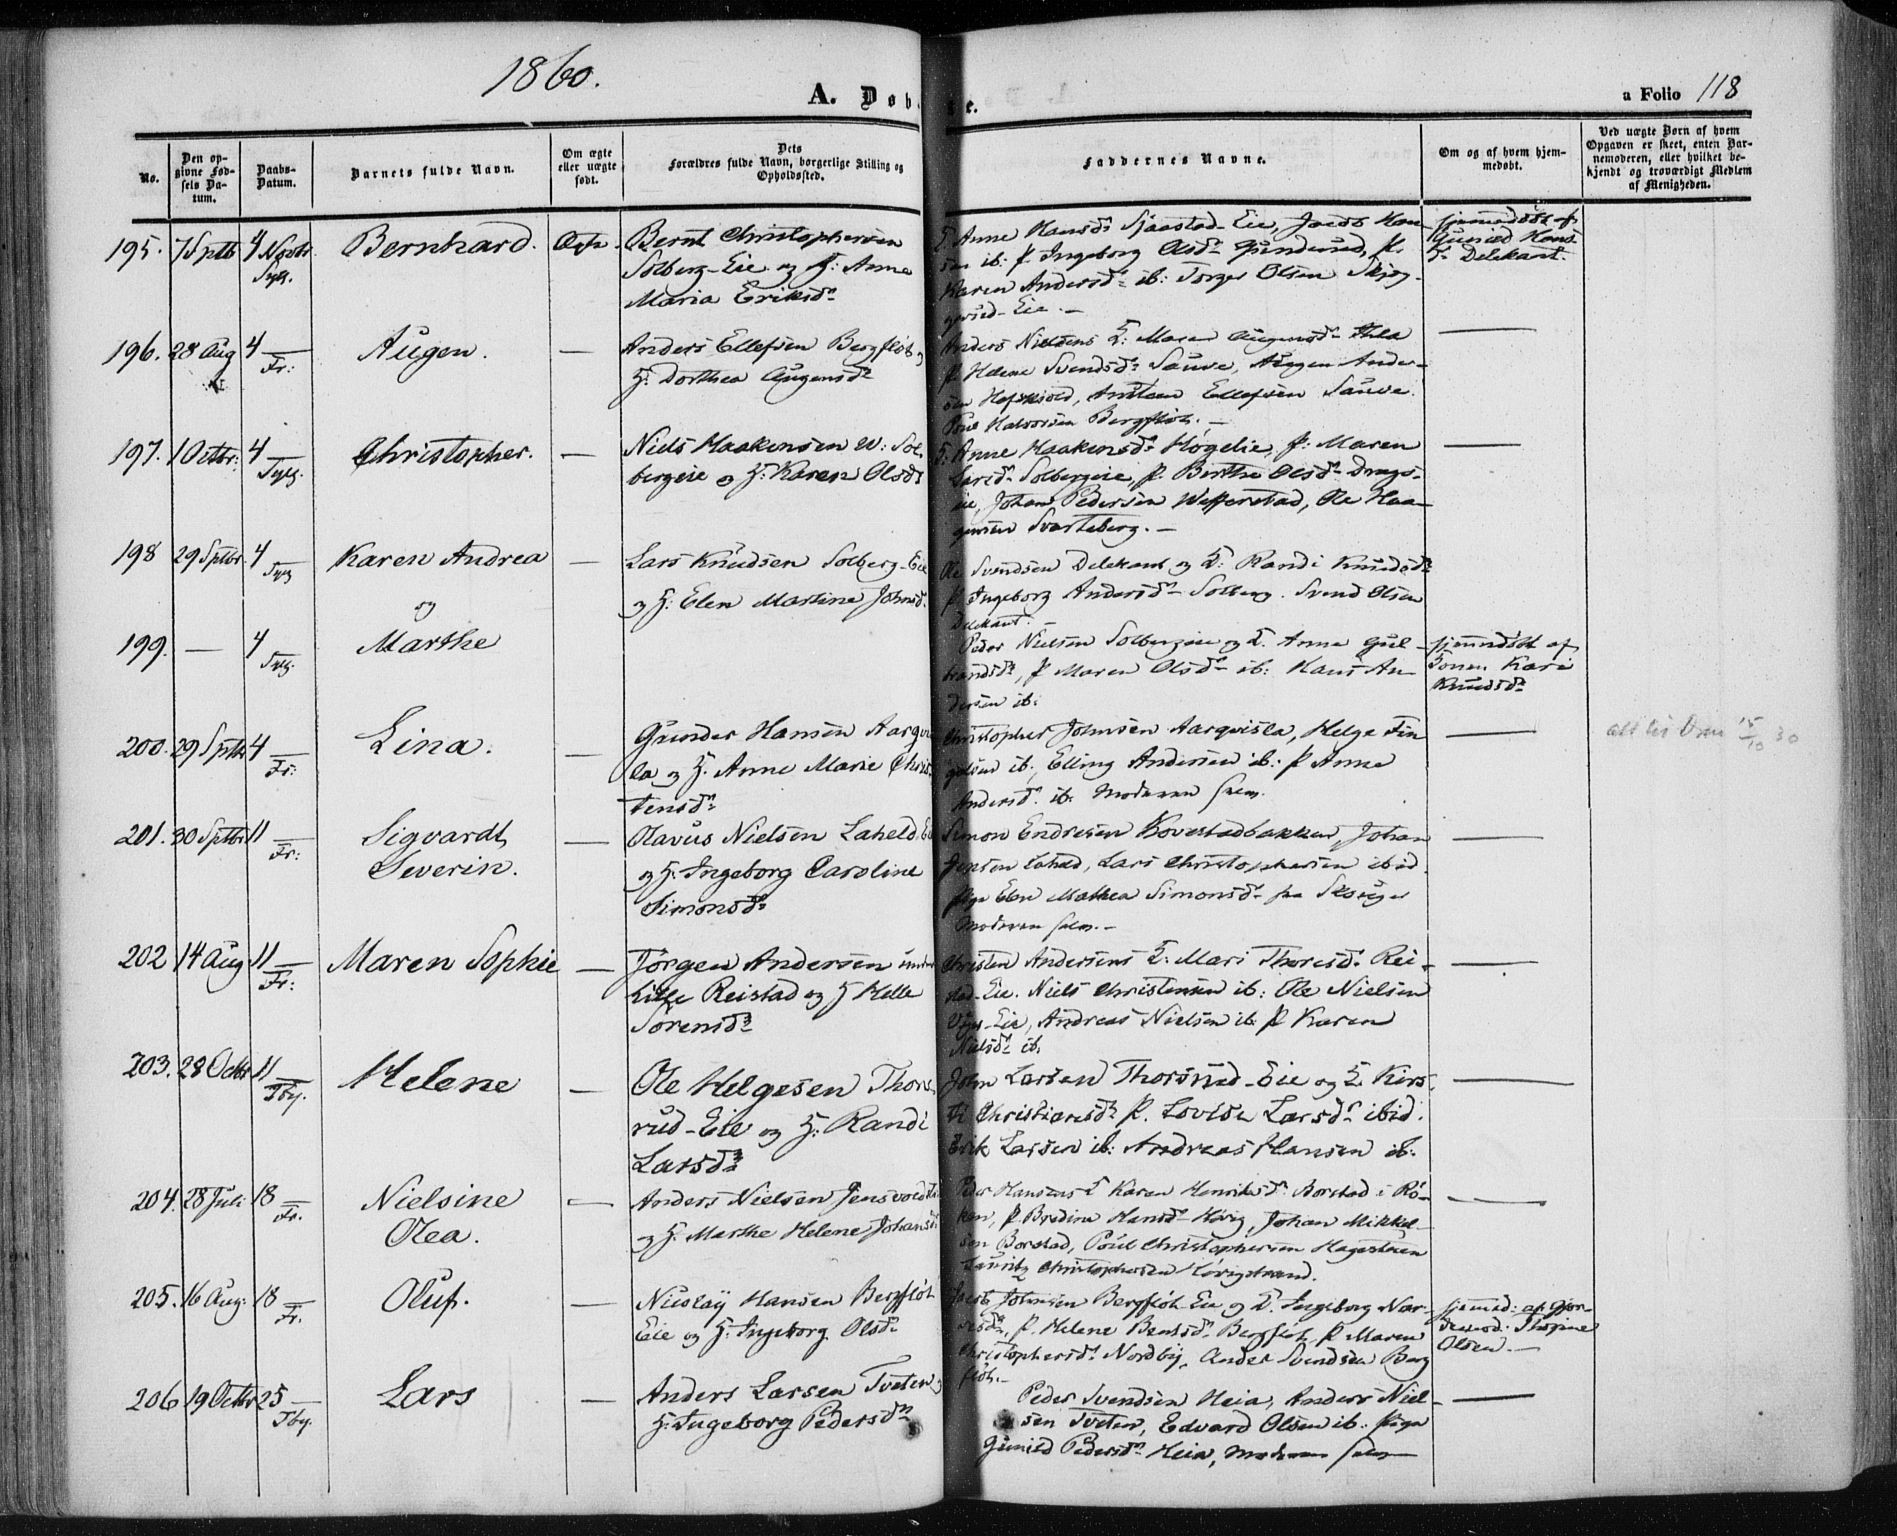 1860.
A. Døb
te.
a Folio 118
No.
Den op-
givne Fød-
sels Da-
tum.
Daabs-
Datum.
Barnets fulde Navn.
Om ægte
eller uægte
født.
Dets
Forældres fulde Navn, borgerlige Stilling og
Opholdssted.
Faddernes Navne.
Om og af hvem hjem-
medøbt.
Ved uægte Børn af hvem
Opgaven er skeet, enten Bar-
nemoderen, eller hvilket be-
kjendt og troværdigt Medlem
af Menigheden.
195. 7 Sptb 4 Novbr Bernhard. Ægte Bernt Christophersen
Solberg-Eie og H: Anne
Maria Eriksd
Anne Hansd Sjaastad-Eie, Jacob Han-
sen ib: P. Ingeborg Olsd Gunderud, P.
Karen Andersd ib: Torger Olsen Skjøg-
gerud-Eie.
hjemmedøbt af
Gunild Hans
Delekant.
196. 28 Aug 4 Fr: Augen. — Anders Ellefsen Bergfløt og
H: Dorthea Augensd
Anders Nielsens K: Maren Augensd
P. Helene Svendsd Sauve, Augen Ander-
sen, Ellefsen Sauve.
Poul Halvorsen Bergfløt.
—
197. 1 Octbr: 4 Christopher. — Niels Haakensen Sol-
bergeie og H: Karen Olsd
Anne Haakensd Høgelie, P: Maren
Larsd Solbergeie, P. Berthe Olsd Drags-
eie, Johan Pedersen Wefferstad, Ole Haa-
gensen Svarteberg.
—
198 29 Sptbr. 4 Karen Andrea — Lars Knudsen Solberg-Eie
og og H: Elen Martine Johnsd.
Ole Svendsen Delekant og K: Randi Knudsd
P. Ingeborg Andersd Solberg. Svend Olsen
Delekant.
199. — 4 Marthe
Peder Nielsen Solbergeie og K. Anne Gul-
brandsd, P Maren Olsd ib: Hans An-
dersen ib.
hjemmedøbt af
Konen Kari
Knudsd
200. 29 Sptbr 4 Fr: Lina. — Gunder Hansen Aarqvis-
la og H. Anne Marie Chris-
tensd
Christopher Johnsen Aarqvisla, Helge Fin-
galsen ib., Elling Andersen ib: P Anne
Andersd. ib. Moderen selv.
—
att til 15/10 30
201. 30 Sptbr 11 Fr: Sigvardt
Severin. — Olavus Nielsen Laheld Eie
og H: Ingeborg Caroline
Simonsd
Simon Endresen Kovestadbakken, Johan
Jensen Laheld, Lars Christophersen ibid.
Pige Elen Mathea Simonsd fra Skoger
Moderen selv.
—
202 14 Aug 11 Fr: Maren Sophie — Jørgen Andersen under
Lille Reistad og H Helle
Sørensd
Christen Andersens K: Mari Thoresd Rei-
stad-Eie. Niels Christensen ib: Ole Nielsen
Eie, Andreas Nielsen ib. P Karen
Nielsd ib.
—
203. 28 Octbr 11 Tby. Helene — Ole Helgesen Thors-
rud-Eie og H: Randi
Larsd
John Larsen Thorsrud-Eie og K. Kirs-
ti Christiansd P. Lovise Larsd ibid.
Erik Larsen ib: Andreas Hansen ib.
—
204. 28 Juli 18 Fr. Nielsine
Olea. — Anders Nielsen Jensvold
og H. Marthe Helene Johansd
Peder Hansens K Karen Henriksd Borstad i Rø-
ken, P. Bredine Hansd Høvig, Johan Mikkel-
sen Borstad, Poul Christophersen Hagesteen
Lauritz Christophersen Høvigstrand.
—
205. 16 Aug. 18 Fr. Oluf. — Nicolaÿ Hansen Bergfløt
Eie og H: Ingeborg Olsd
Jacob Johnsen Bergfløt-Eie og K. Ingeborg
P. Helene Berntsd Bergfløt P. Maren
Christophersd Nordby, Anders Svendsen Berg-
fløt.
hjemmed: af Gjor-
demod: Thorine
Olsen.
206 19 Octbr 25 Tby. Lars — Anders Larsen Tveten og
H: Ingeborg Pedersd
Peder Svendsen Heia, Anders Niel-
sen Tveten, Edvard Olsen ib. Pige
Gunild Pedersd Heia, Moderen selv
—